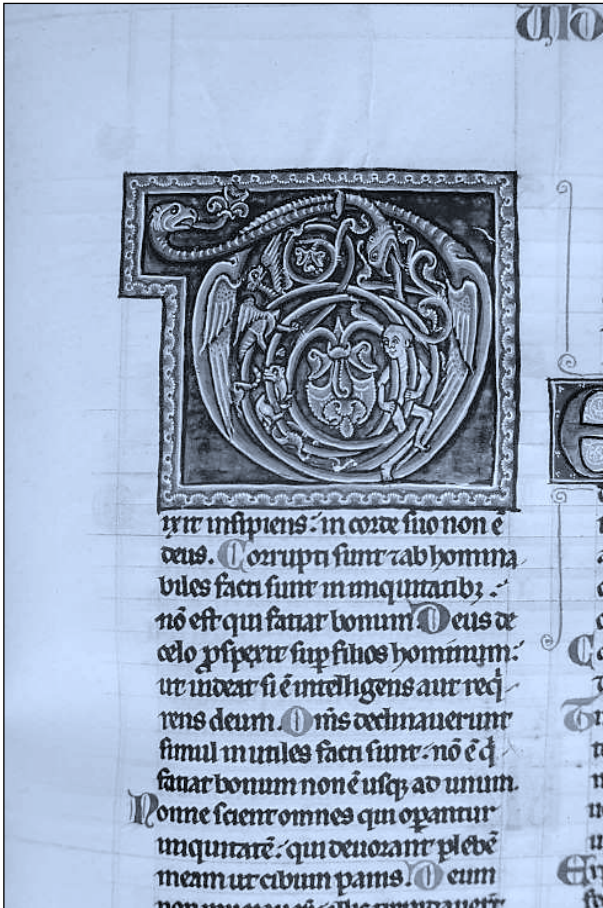 D
ixit insipiens: in corde suo non ē
deus. Corrupti sunt ⁊ abhomina
biles facti sunt in iniquitatibꝫ.
nō est qui faciat bonum. Deus de
celo ꝓspexit suꝑ filios hominum:
ut uideat si ē intelligens aut reqͥ
rens deum. Om̄s declinauerunt
simul inutiles facti sunt. nō ē qͥ
faciat bonum non ē usqꝫ ad unum.
Nonne scient omnes qui oꝑantur
iniquitatē: qui deuorant plebē
meam ut cibum panis. Deum